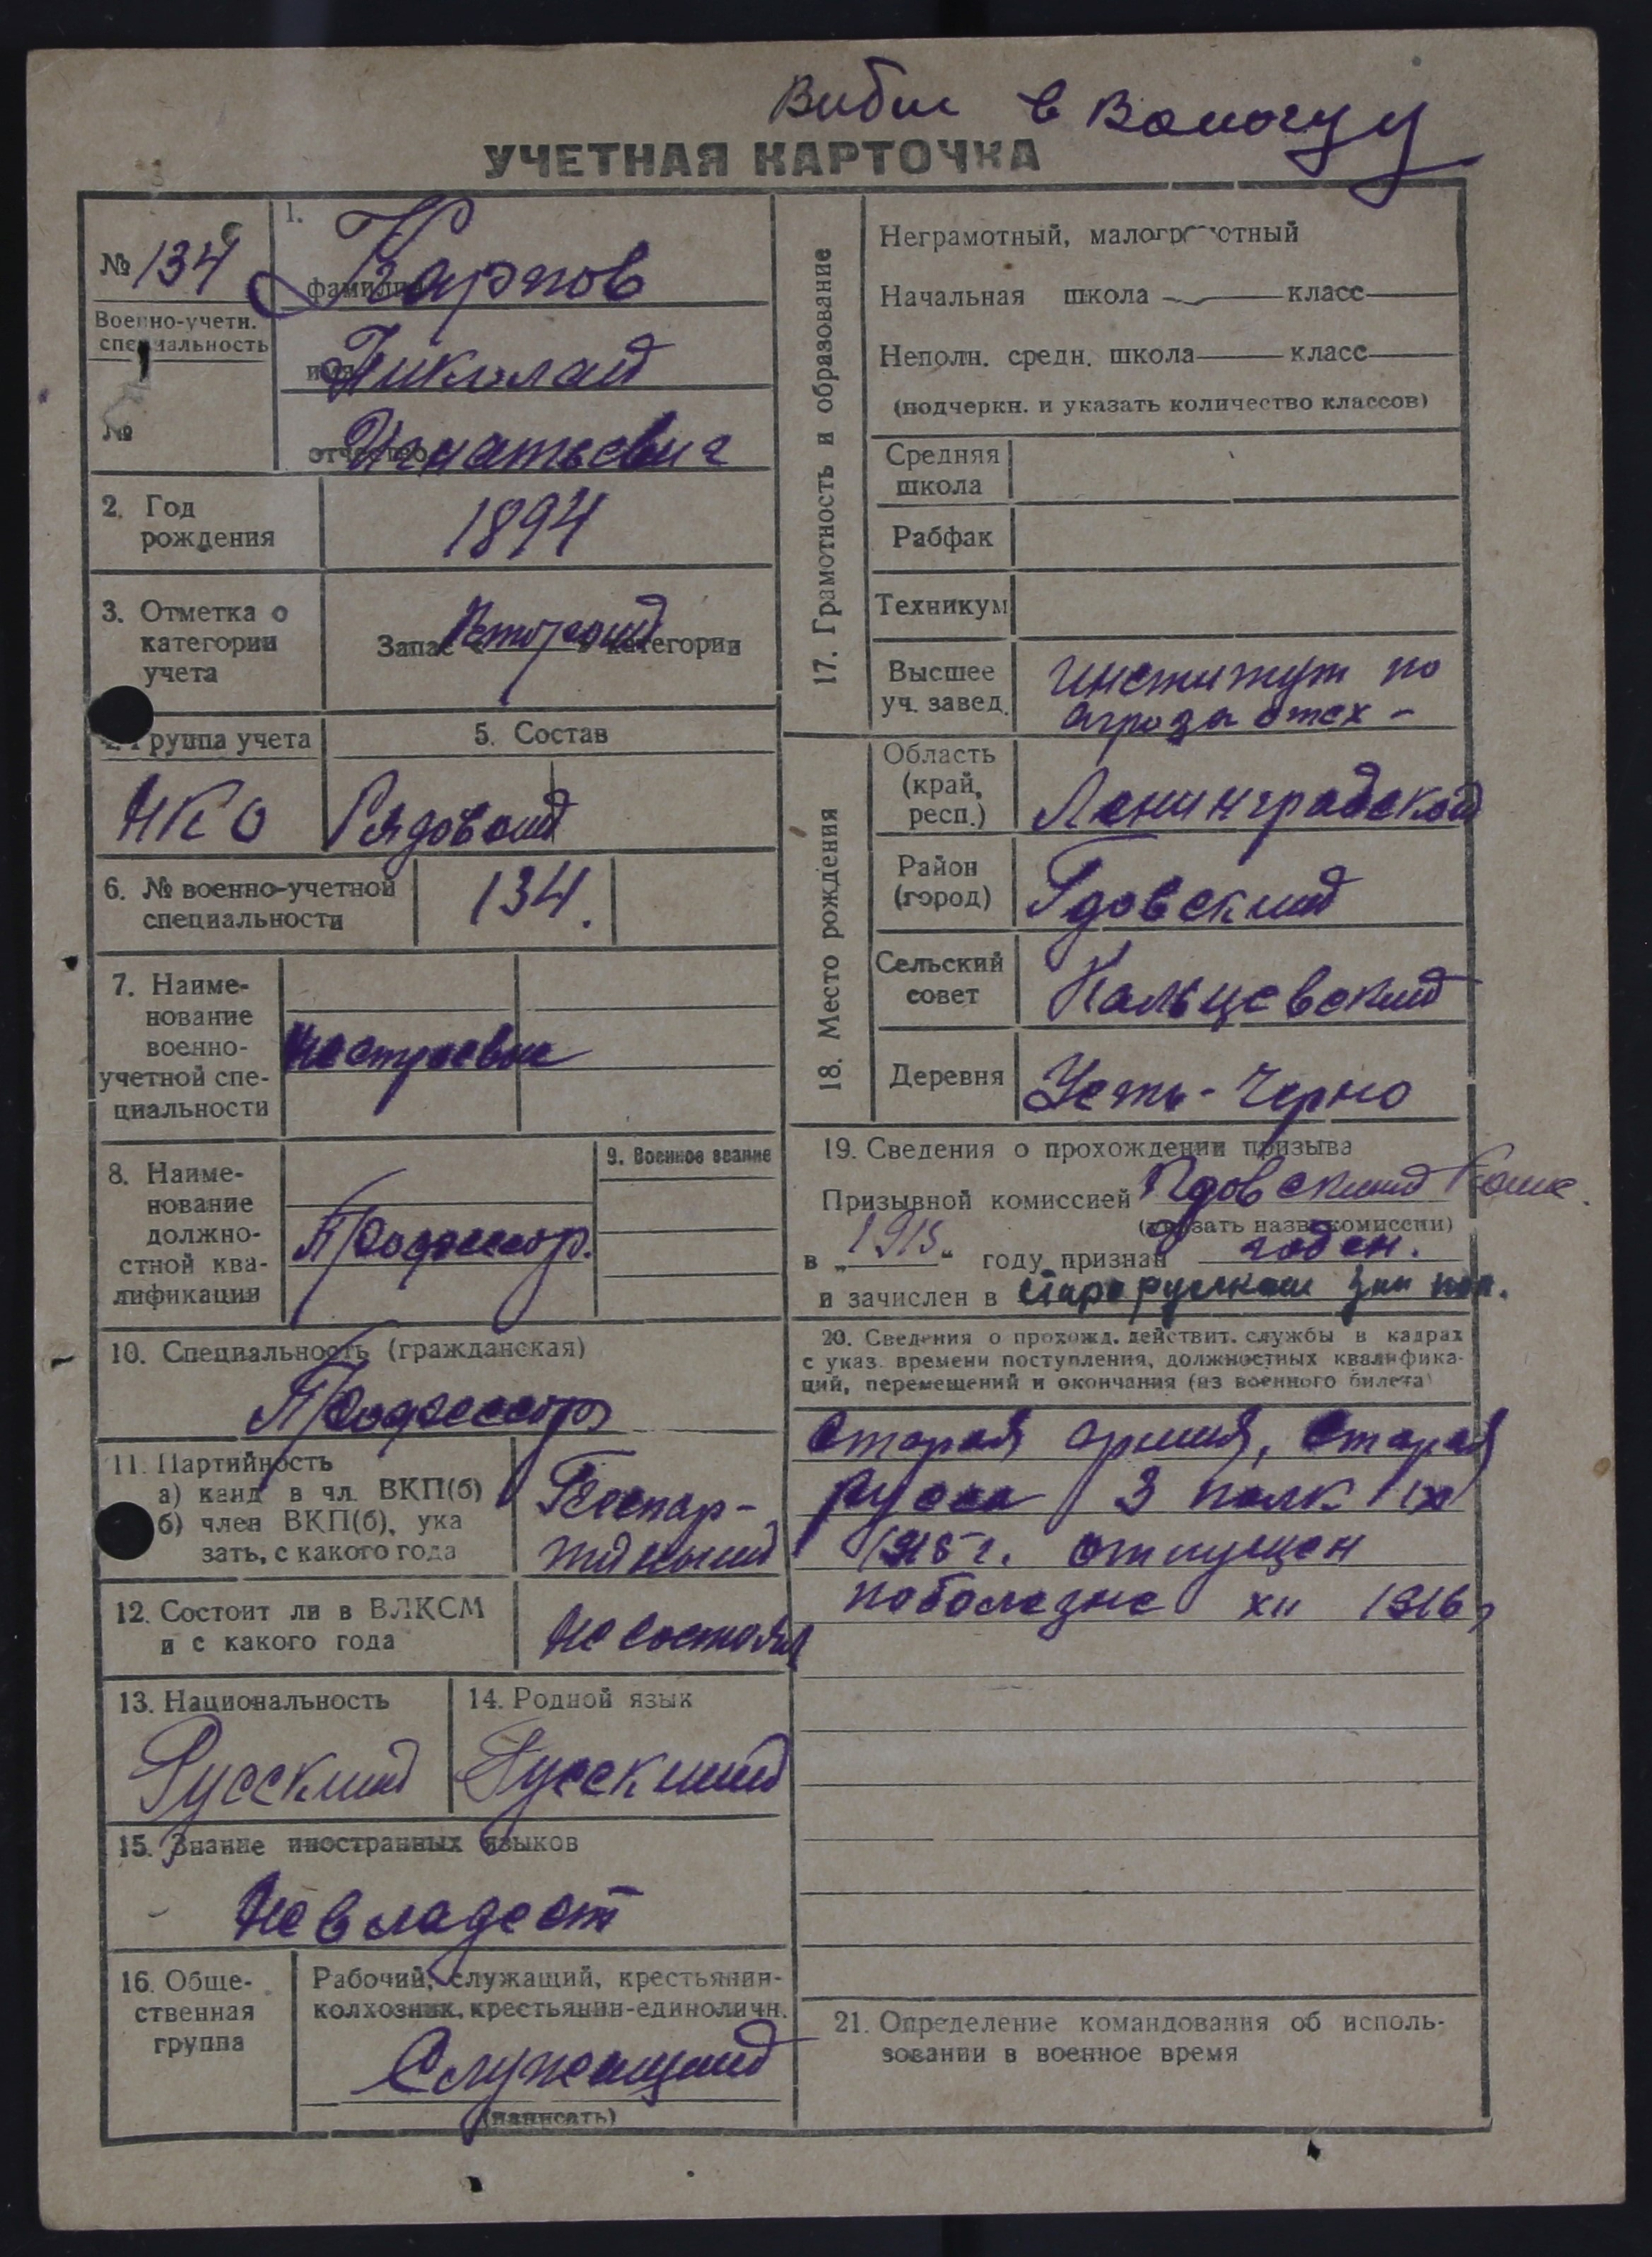 Выбыл в Вологду
УЧЕТНАЯ КАРТОЧКА
№ 134
Военно-учетн.
специальность
№
1.
Карпов
фамилия
Николай
имя
Игнатьевич
отчество
2. Год
рождения
1894
3. Отметка о
категории
учета
Запас второй категории
4. Группа учета
НКО
5. Состав
Рядовой
6. № военно-учетной
специальности
134.
7. Наиме-
нование
военно-
учетной спе-
циальности
нестроевые
8. Наиме-
нование
должно-
стной ква-
лификации
Профессор.
9. Военное звание
10. Специальность (гражданская)
Профессор
11. Партийность
а) канд в чл. ВКП(б)
б) член ВКП(б), ука
зать, с какого года
Беспар-
тийный
12. Состоит ли в ВЛКСМ
и с какого года
Не состоял
13. Национальность
Русский
14. Родной язык
Русский
15. Знание иностранных языков
Не владеет
16. Обще-
ственная
группа
Рабочий, служащий, крестьянин-
колхозник, крестьянин-единоличн.
Служащий
(написать)
17. Грамотность и образование
Неграмотный, малограмотный
Начальная школа класс
Неполн. средн. школа класс
(подчеркн. и указать количество классов)
Средняя
школа
Рабфак
Техникум
Высшее
уч. завед.
Институт по
18. Место рождения
Область
(край,
респ.)
Ленинградской
Район
(город)
Гдовский
Сельский
совет
Кальцевский
Деревня
Усть-Черно
19. Сведения о прохождении призыва
Призывной комиссией Гдовский
(указать назв. комиссии)
в „1915“ году признан годен.
и зачислен в Старорусском зап
20. Сведения о прохожд. действит. службы в кадрах
с указ. времени поступления, должностных квалифика-
ций, перемещений и окончания (из военного билета)
Старая армия, Старая
Русса 3 полк IX
1915 г. отпущен
по болезне XII 1916
21. Определение командования об исполь-
зовании в военное время